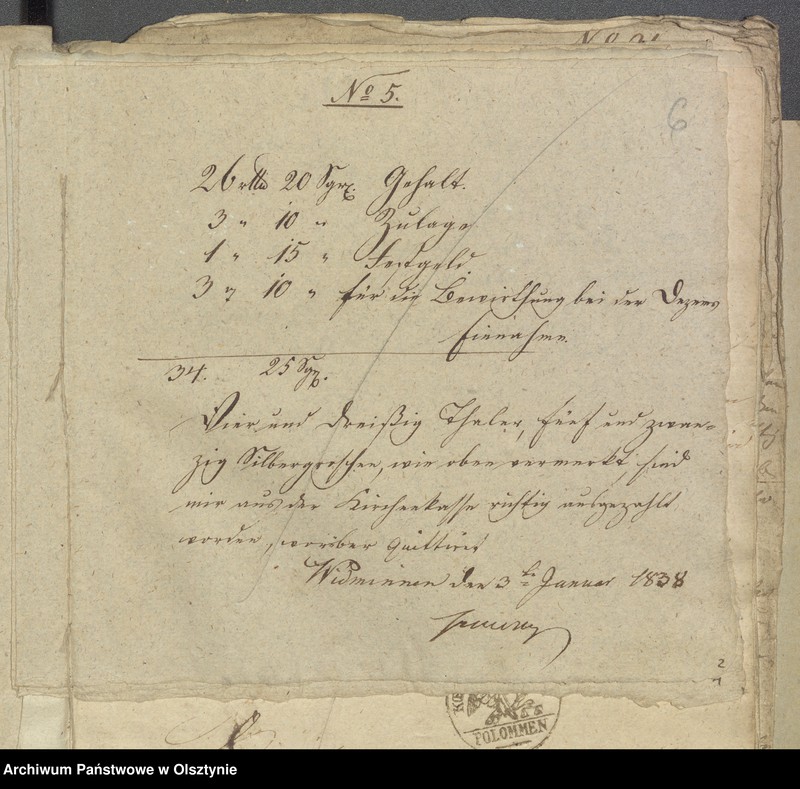 No 5.
6
26 rtlr 20 Sgr. Gehalt.
3 " 10 " Zulage
1 " 15 "
3 " 10 " für die Bewirthung bei der Dezems
Einnahme.
34. 25 Sgr.
Vier und dreißig Thaler, fünf und zwan=
zig Silbergroschen, wie oben vermerkt sind
mir aus der Kirchenkasse richtig ausgezahlt
worden, worüber quittirt
Widminnen den 3t Januar 1838
2
POLOMMEN
Archiwum Państwowe w Olsztynie